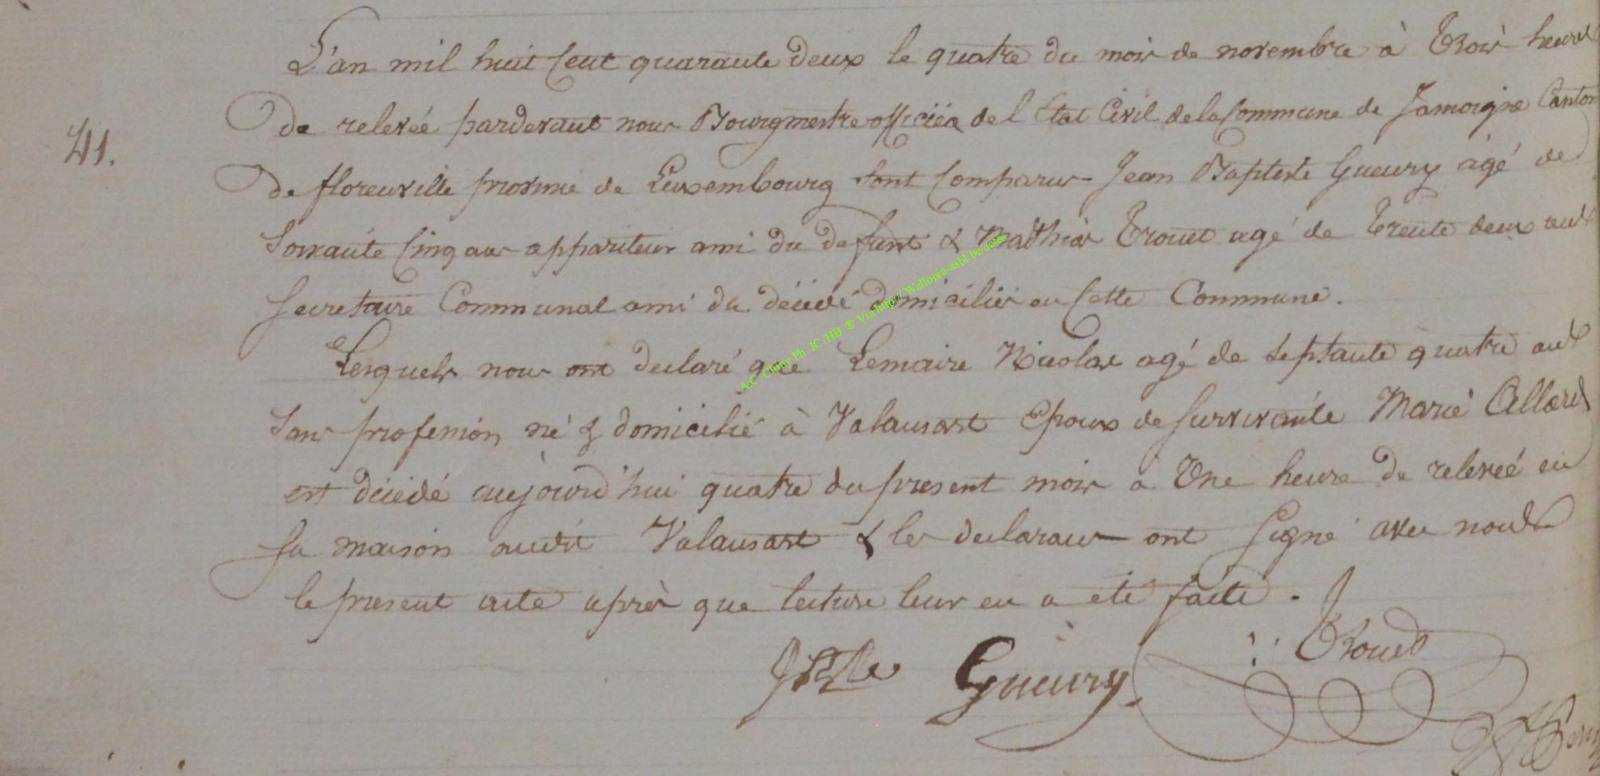 L'an mil huit cent quarante deux le quatre du mois de novembre à Trois heures
41.
de relevée pardevant nous Bourgmestre officier de l'Etat Civil de la Commune de Jamoigne Canton
de florenville province de Luxembourg sont Comparus Jean Baptiste Gueury agé de
Soixante Cinq ans appariteur ami du defunt & Mathias Trouet agé de Trente deux ans
Secretaire Communal ami du décédé domiciliés en Cette Commune.
Lesquels nous ont declaré que Lemaire Nicolas agé de septante quatre ans
Sans profession né & domicilié à Valansart Epoux de Survivante Marie Allard
est décédé aujourd'hui quatre du présent mois a Une heure de relevée en
sa maison audit Valansart & les declarans ont signé avec nous
le present acte après que lecture leur en a été faite.
JBte Gueury Trouet